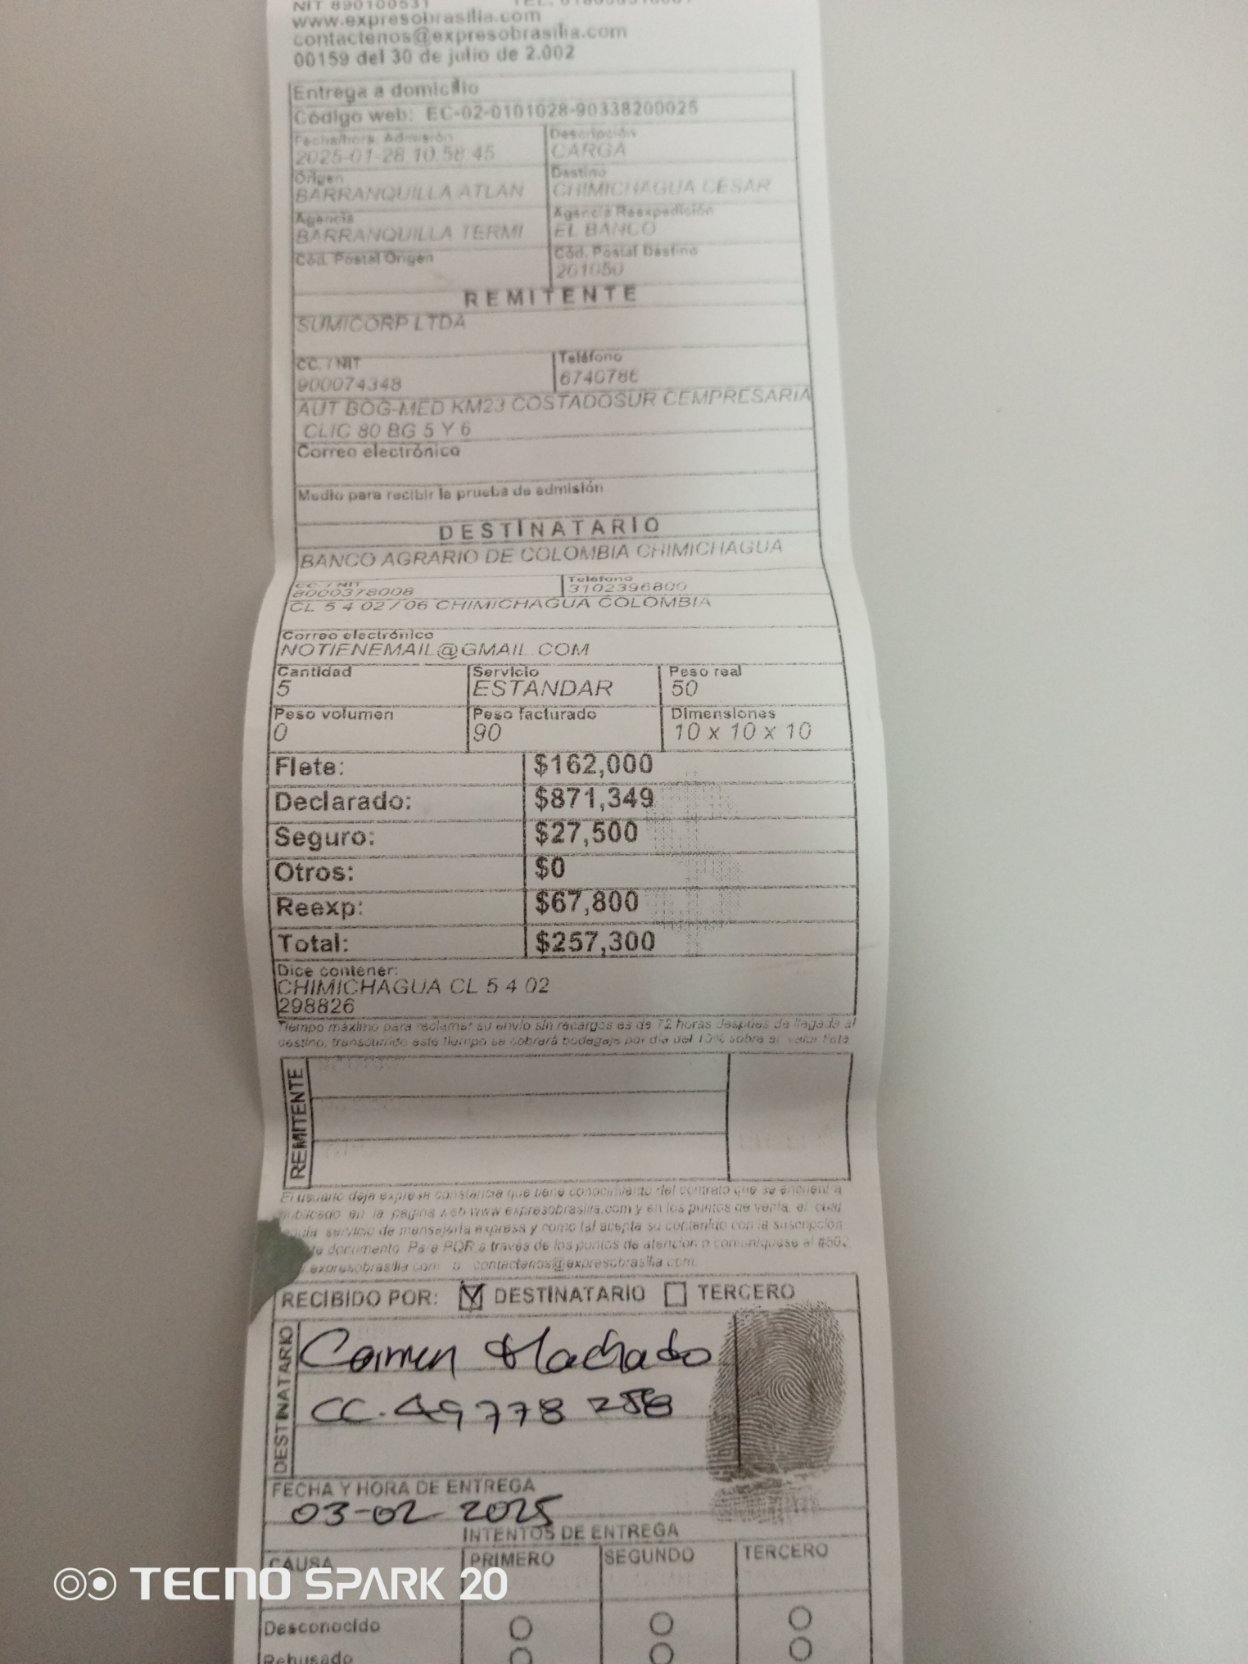 NIT 890100531
www.expresobrasilia.com
contactenos@expresobrasilia.com
00159 del 30 de julio de 2.002
Entrega a domicilio
Código web: EC-02-0101028-90338200025
Fecha/hora Admisión Descripción
2025-01-28 10:58:45 CARGA
Origen Destino
BARRANQUILLA ATLAN CHIMICHAGUA CESAR
Agencia Agencia Reexpedición
BARRANQUILLA TERMI EL BANCO
Cód. Postal Origen Cód. Postal Destino
201050
REMITENTE
SUMICORP LTDA
CC. / NIT Teléfono
900074348 6740786
AUT BOG-MED KM23 COSTADOSUR CEMPRESARIA
CLIC 80 BG 5 Y 6
Correo electrónico
Medio para recibir la prueba de admisión
DESTINATARIO
BANCO AGRARIO DE COLOMBIA CHIMICHAGUA
CC. / NIT Teléfono
8000378008 3102396800
CL 5 4 02 / 06 CHIMICHAGUA COLOMBIA
Correo electrónico
NOTIENEMAIL@GMAIL.COM
Cantidad Servicio Peso real
5 ESTANDAR 50
Peso volumen Peso facturado Dimensiones
0 90 10 x 10 x 10
Flete: $162,000
Declarado: $871,349
Seguro: $27,500
Otros: $0
Reexp: $67,800
Total: $257,300
Dice contener:
CHIMICHAGUA CL 5 4 02
298826
Tiempo máximo para reclamar su envío sin recargos es de 72 horas después de llegada al
destino, transcurrido este tiempo se cobrará bodegaje por día del 10% sobre el valor flete
REMITENTE
El usuario deja expresa constancia que tiene conocimiento del contrato que se encuentra
publicado en la página web www.expresobrasilia.com y en los puntos de venta, el cual
servicio de mensajería express y como tal acepta su contenido con la suscripción
documento. Para PQR a través de los puntos de atención o comuníquese al #502
expresobrasilia.com o contactenos@expresobrasilia.com.
RECIBIDO POR: DESTINATARIO TERCERO
DESTINATARIO
Carmen Machado
CC. 49778258
FECHA Y HORA DE ENTREGA
03-02 2025
INTENTOS DE ENTREGA
CAUSA PRIMERO SEGUNDO TERCERO
TECNO SPARK 20
Desconocido
Rehusado